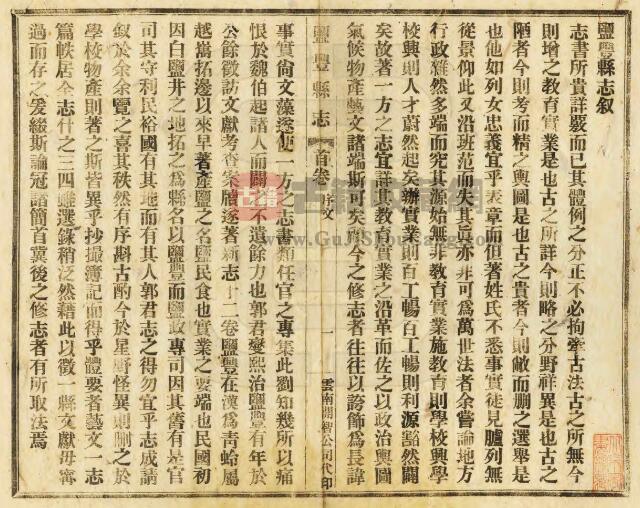 鹽豐縣志叙
志書所貴詳覈而已其體例之分正不必拘牽古法古之所無今
則增之教育實業是也古之所詳今則略之分野祥異是也古之
陋者今則考而精之輿圖是也古之貴者今則敝而刪之選舉是
也他如列女忠義宜乎表章而但著姓氏不悉事實徒見臚列無
從景仰此又沿班范而失其眞亦非可為萬世法者余嘗論地方
行政雖然多端而究其源始無非教育實業施教育則學校興學
校興則人才蔚然起矣辦實業則百工暢百工暢則利源豁然闢
矣故著一方之志宜詳其教育實業之沿革而佐之以政治輿圖
氣候物產藝文諸端斯可矣所今之修志者往往以誇飾為長諱
鹽豐縣志
首卷
序文
一
雲南開智公司代印
事實尙文藻遂使一方之志書類任官之專集此劉知幾所以痛
恨於魏伯起諸人而闢之不遺餘力也郭君燮熙治鹽豐有年於
公餘徵訪文獻考查案牘遂著新志十二卷鹽豐在漢爲青蛉屬
越嶲拓邊以來早著產鹽之名鹽民食也實業之要端也民國初
因白鹽井之地拓之爲縣名以鹽豐而鹽政專司因其舊有是官
司其守利民裕國有其地而有其人郭君志之得勿宜乎志成請
叙於余余覽之喜其秩然有序斟古酌今於星野怪異則刪之於
學校物產則著之斯皆異乎抄撮簿記而得乎體要者藝文一志
篇帙居全志什之三四雖選錄稍泛然藉此以徵一縣文獻毋甯
過而存之爰綴斯論冠諸簡首冀後之修志者有所取法焉
古籍收藏網
www.GuJiShouCang.com